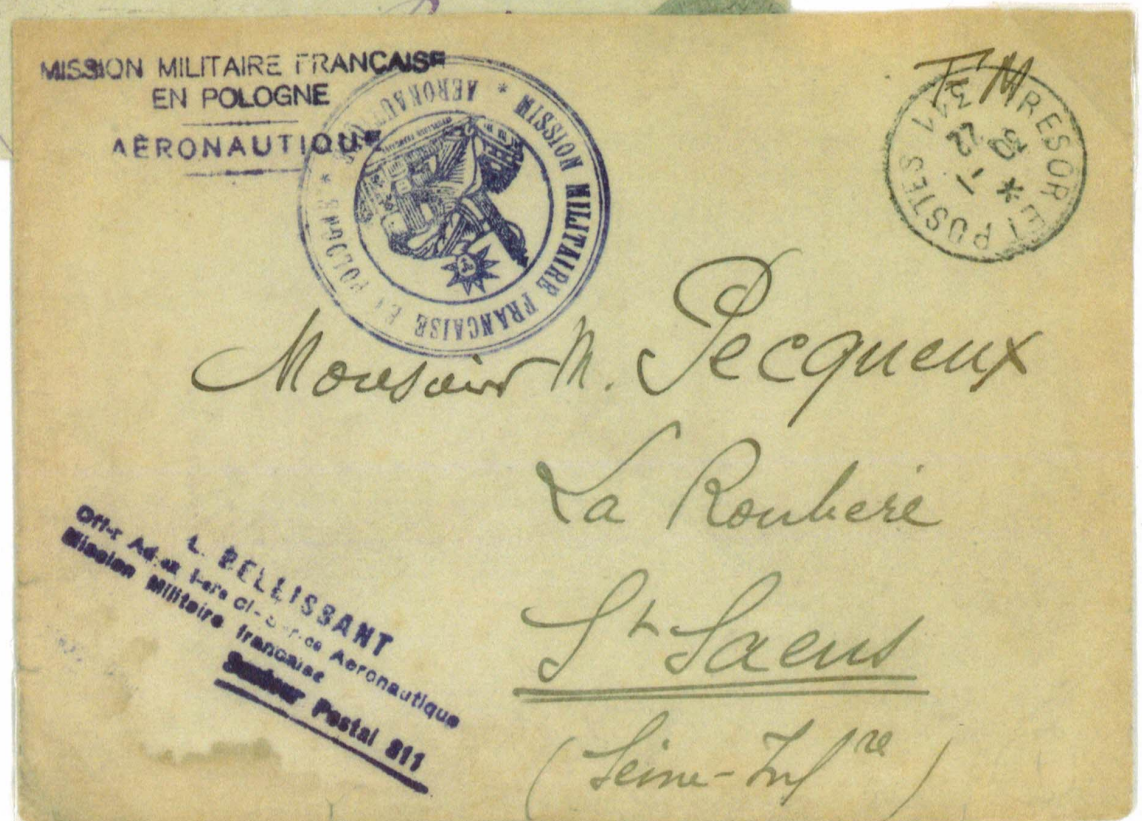 MISSION MILITAIRE FRANÇAISE
EN POLOGNE
AÉRONAUTIQUE
MISSION MILITAIRE FRANÇAISE EN POLOGNE * AERONAUTIQUE *
F M
TRESOR ET POSTES 311
*
30
-1
22
Monsieur M. Pecqueux
La Rouberie
St Saens
(Seine-Infre)
L. BELLISSANT
Mission Militaire française
Secteur Postal 311